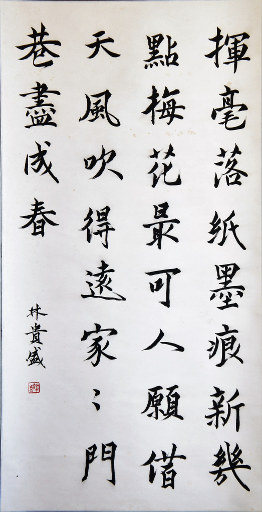 揮毫落紙墨痕新幾
點梅花最可人願借
天風吹得遠家〻門
巷盡成春
林貴盛